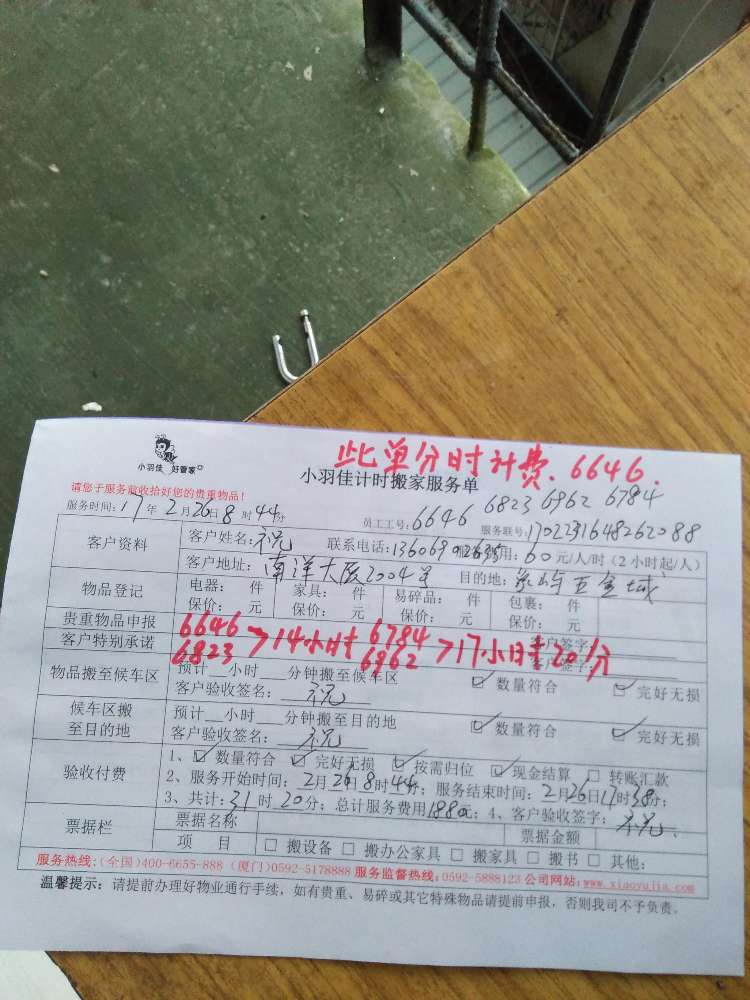 小羽佳 好管家
此单分时计费.6646.
小羽佳计时搬家服务单
请您于服务前收拾好您的贵重物品！
服务时间：17年2月26日8时44分 员工工号：6646 6823 6962 6784 服务联号：1702231648262088
客户资料
客户姓名： 联系电话： 费用：60元/人/时（2小时起/人）
客户地址：南洋大厦2004号 目的地：
物品登记
电器： 件 家具： 件 易碎品： 件 包裹： 件
保价： 元 保价： 元 保价： 元 保价： 元
贵重物品申报 客户签字：
客户特别承诺 客户签字：
6646 6823 >14小时 6784 6962 >17小时20分
物品搬至候车区
预计__小时___分钟搬至候车区 ☑ 数量符合 ☑ 完好无损
客户验收签名：
候车区搬至目的地
预计__小时___分钟搬至目的地 ☑ 数量符合 ☑ 完好无损
客户验收签名：
验收付费
1、☑ 数量符合 ☑ 完好无损 ☑ 按需归位 ☑ 现金结算 □ 转账汇款
2、服务开始时间：2月26日8时44分；服务结束时间：2月26日17时38分；
3、共计：31时20分；总计服务费用1880元；4、客户验收签字：
票据栏
票据名称 票据金额
项 目 □ 搬设备 □ 搬办公家具 □ 搬家具 □ 搬书 □ 其他：
服务热线：（全国）400-6655-888（厦门）0592-5178888 服务监督热线：0592-5888123 公司网站：www.xiaoyujia.com
温馨提示：请提前办理好物业通行手续，如有贵重、易碎或其它特殊物品请提前申报，否则我司不予负责。